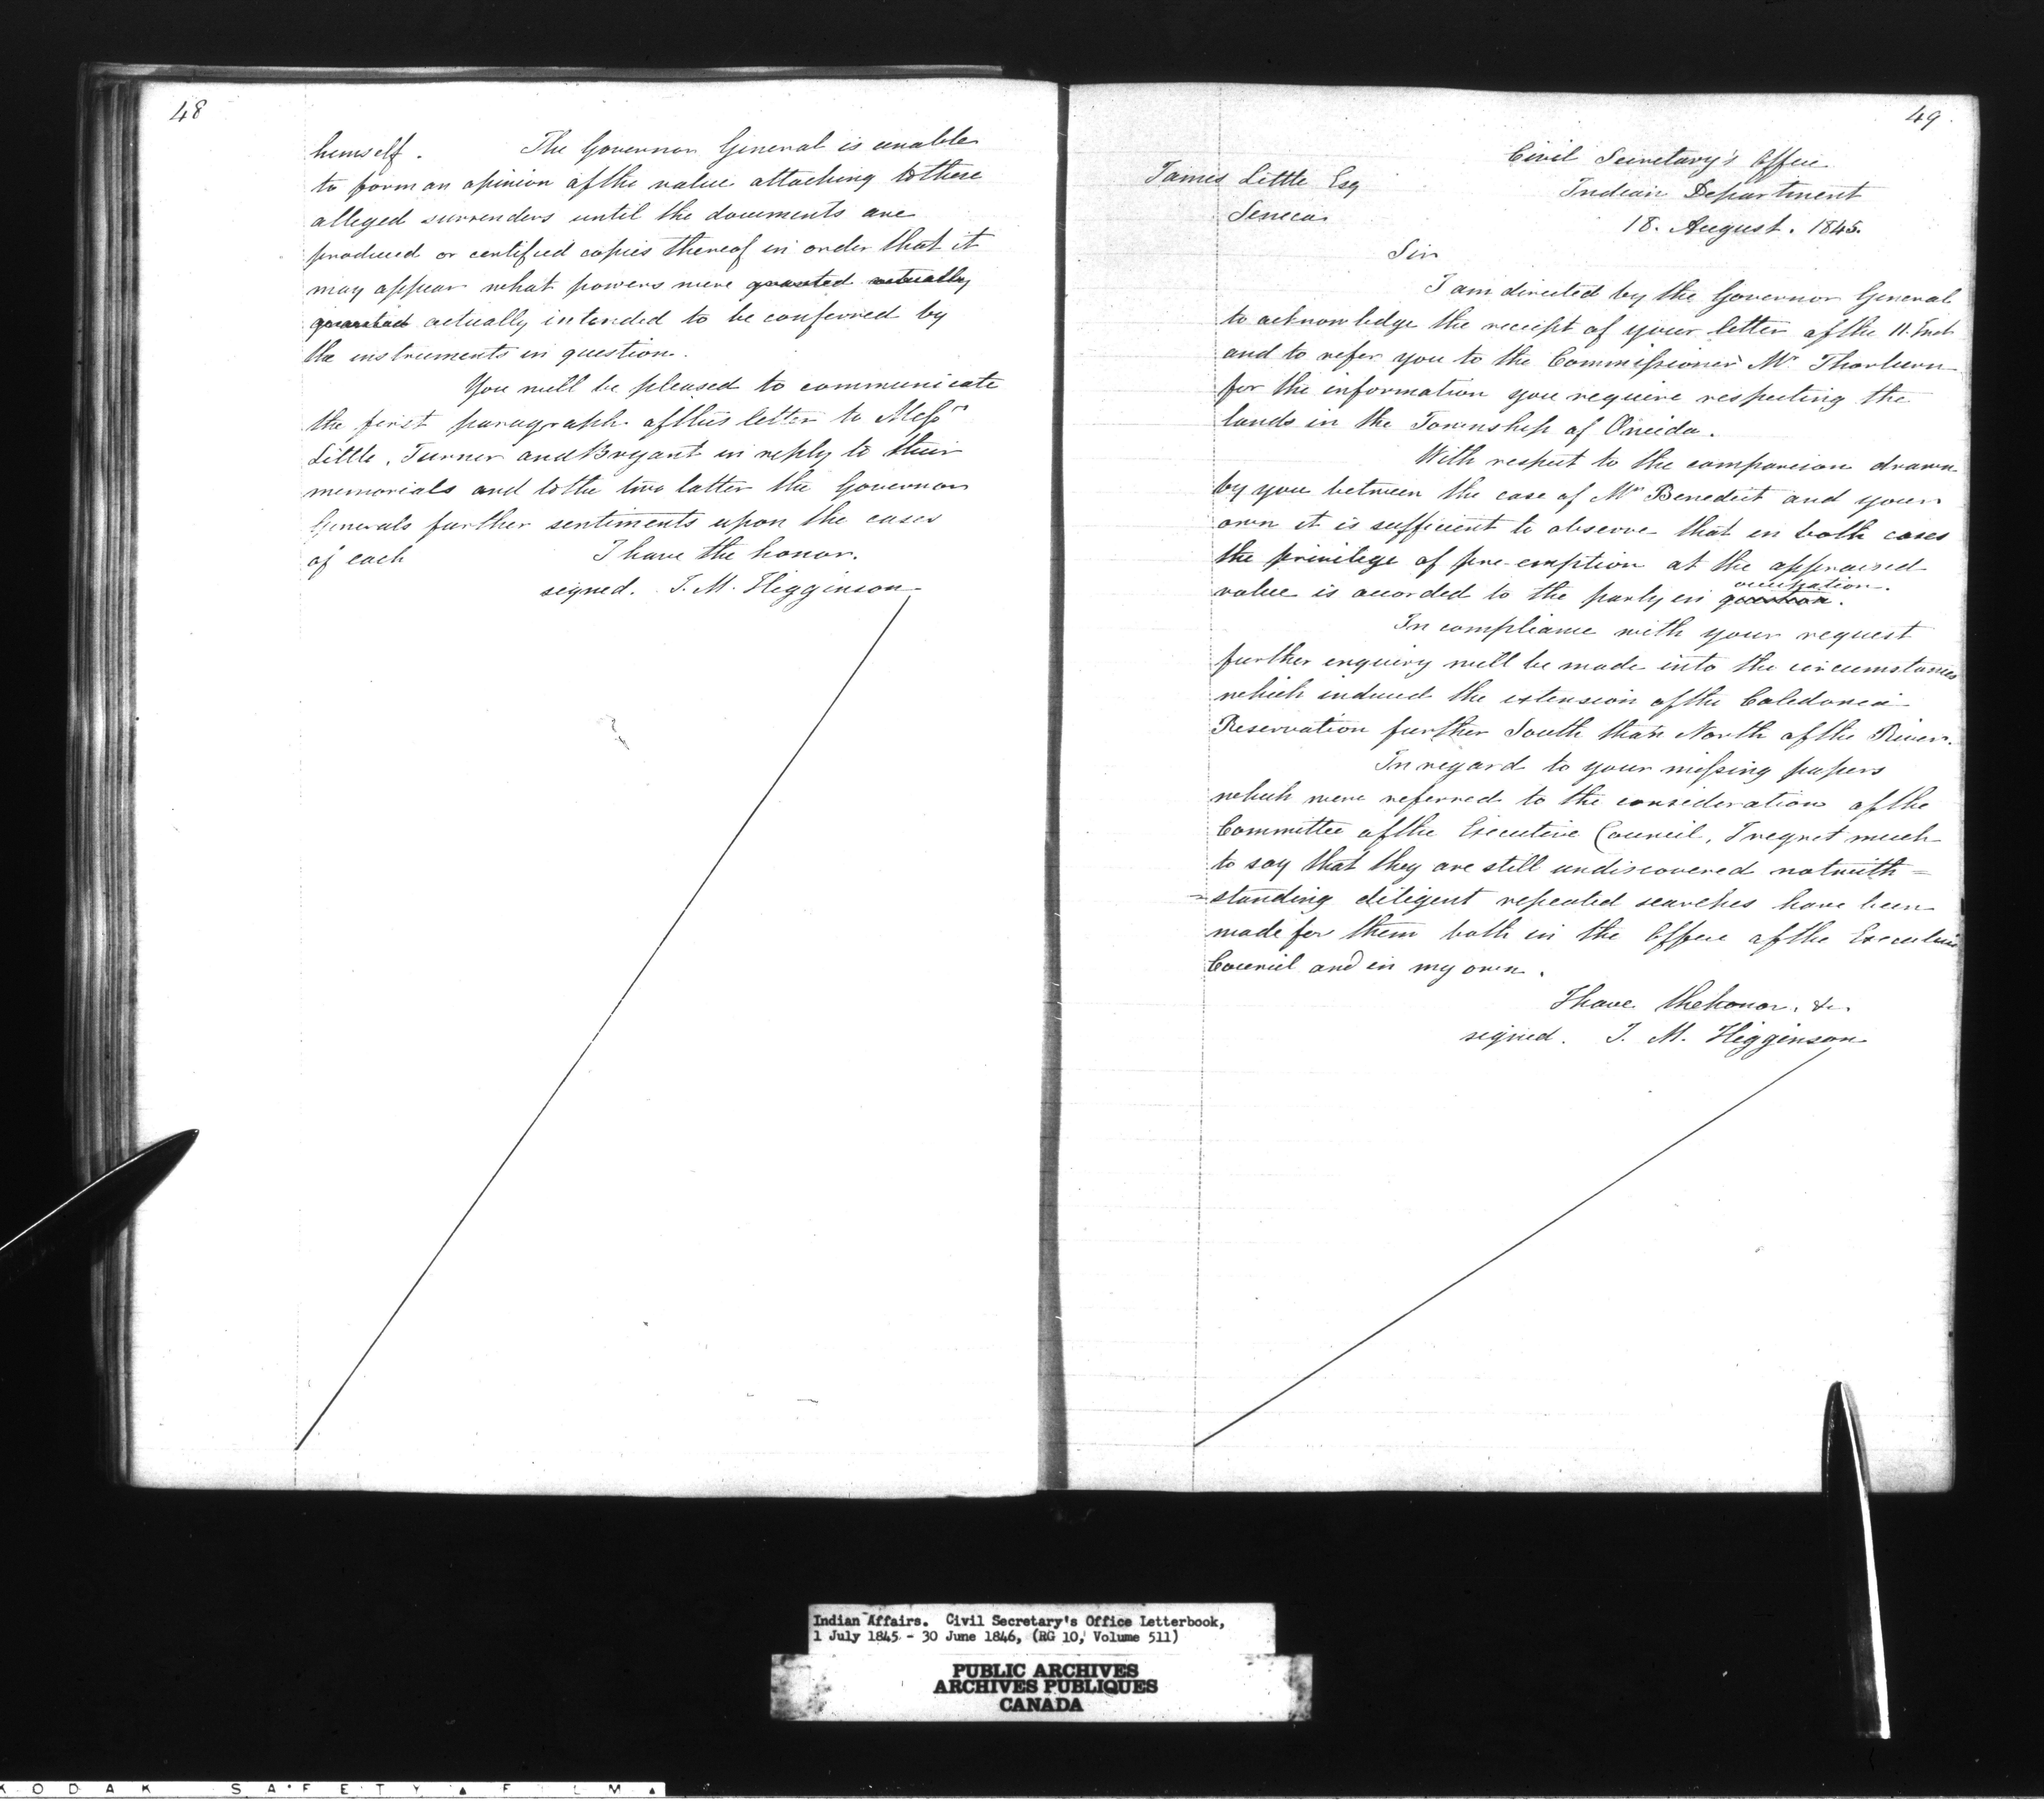 48
himself. The Governor General is unable
to form an opinion of the value attaching to these
alleged surrenders until the documents are
produced or certified copies thereof in order that it
may appear what powers were granted actually
granted actually intended to be conferred by
the instruments in question.
You will be pleased to communicate
the first paragraph of this letter to Messrs
Little, Turner and Bryant in reply to their
memorials and to the two latter the Governor
Generals further sentiments upon the cases
of each
I have the honor.
signed. J. M. Higginson
49.
Civil Secretary's Office
Indian Department
18. August. 1845.
James Little Esq
Seneca
Sir
I am directed by the Governor General
to acknowledge the receipt of your letter of the 11. Inst
and to refer you to the Commissioner Mr Thorburn
for the information you require respecting the
lands in the Township of Oneida.
With respect to the comparison drawn
by you between the case of Mr Benedict and your
own it is sufficient to observe that in both cases
the privilege of pre-emption at the appraised
value is accorded to the party in question. occupation.
In compliance with your request
further enquiry will be made into the circumstances
which induced the extension of the Caledonia
Reservation further South than North of the River.
In regard to your missing papers
which were referred to the consideration of the
Committee of the Executive Council, I regret much
to say that they are still undiscovered notwith=
=standing diligent repeated searches have been
made for them both in the Office of the Executive
Council and in my own.
I have the honor. &c.
signed. J. M. Higginson
Indian Affairs. Civil Secretary's Office Letterbook,
1 July 1845 - 30 June 1846, (RG 10, Volume 511)
PUBLIC ARCHIVES
ARCHIVES PUBLIQUES
CANADA
KODAK SAFETY FILM